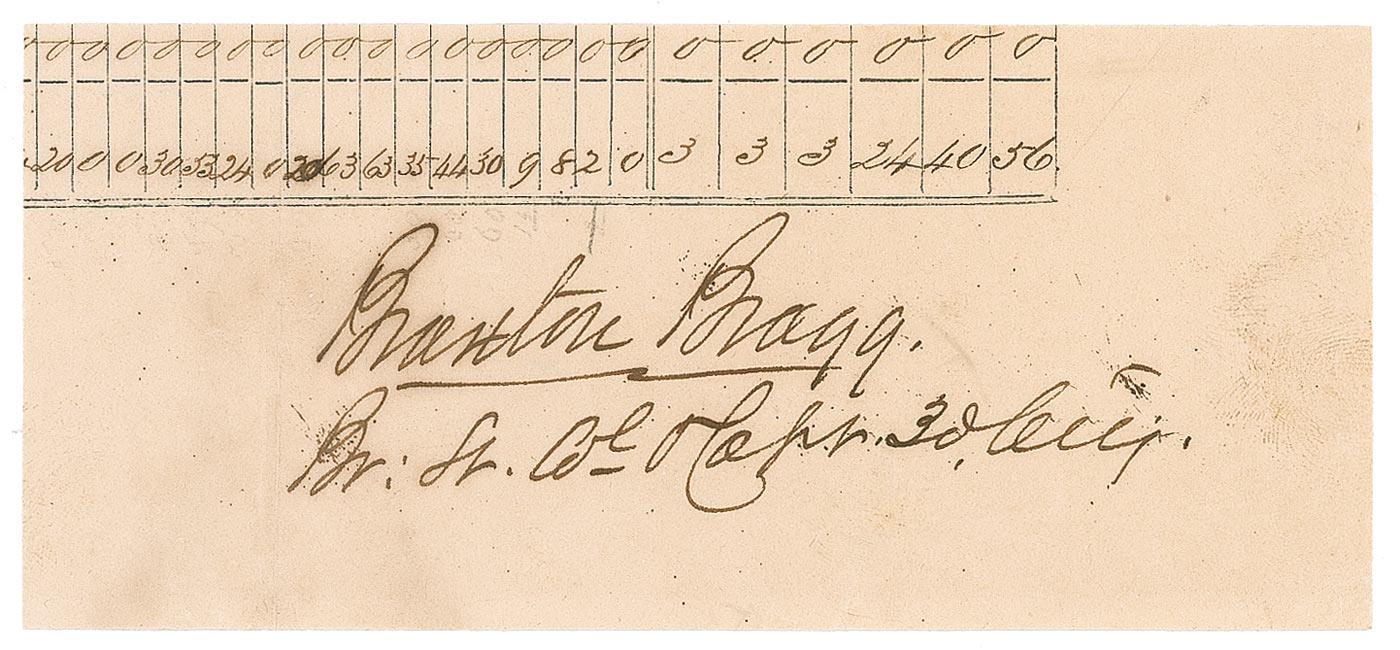 0 0 0 0 0 0 0 0 0 0 0 0 0 0 0 0 0 0 0 0 0 0 0 0
20 0 0 30 33 24 0 63 63 35 44 30 9 82 0 3 3 3 24 40 56.
Braxton Bragg.
Br: Lt. Col & Capt. 3d,